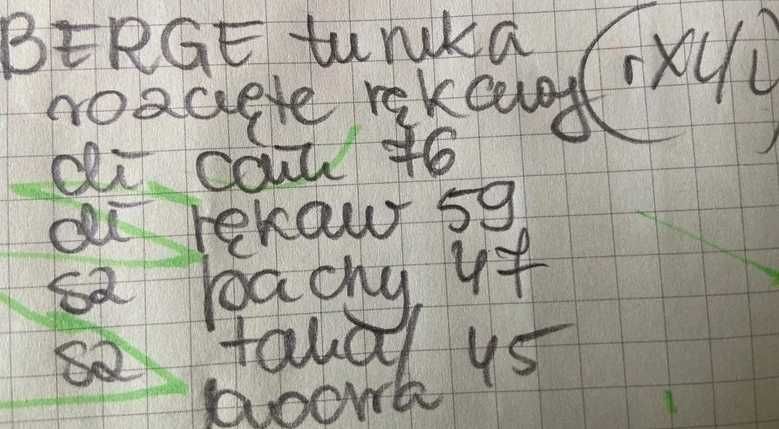 BERGE tunika
rozcięte rękawy (rXL)
dł całk 76
dł rękaw 59
sz pachy 47
sz talia/ 45
biodra